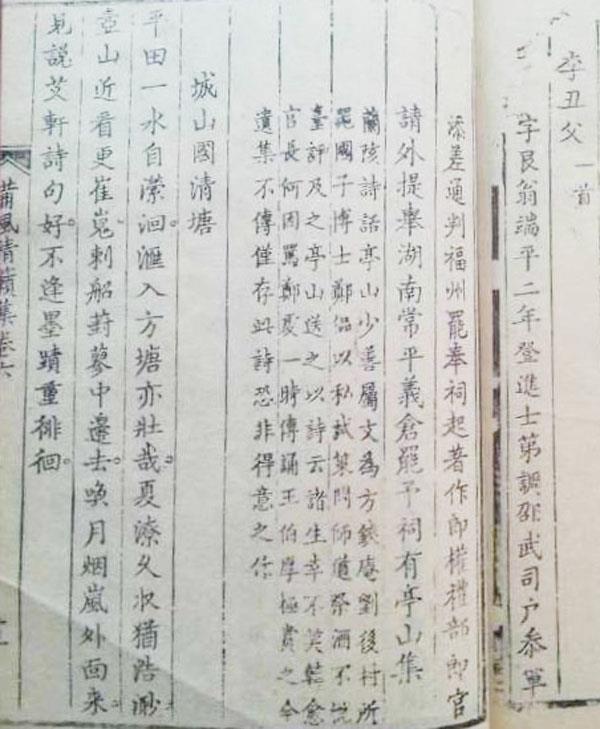 李丑父一首
字艮翁端平二年登進士第誤邵武司户叅軍
添差通判福州罷奉祠起著作郎權禮部郎官
請外提舉湖南常平義倉罷予祠有亭山集
蘭陔詩話亭山少善屬文為方鐵庵劉後村所
國子博士鄭侣以私試策問師道祭酒不悦
臺評及之亭山送之以詩云諸生幸不笑韓愈
官長何因罵鄭虔一時傳誦王伯厚極賞之今
遺集不傳僅存此詩恐非得意之作
城山國清塘
平田一水自瀠洄。滙入方塘亦壯哉。夏潦久收猶浩渺
壺山近看更崔嵬。刺船葑蓼中邊去。喚月烟嵐外面来。
見説艾軒詩句好。不逢墨蹟重徘徊。
莆風清籟集卷六